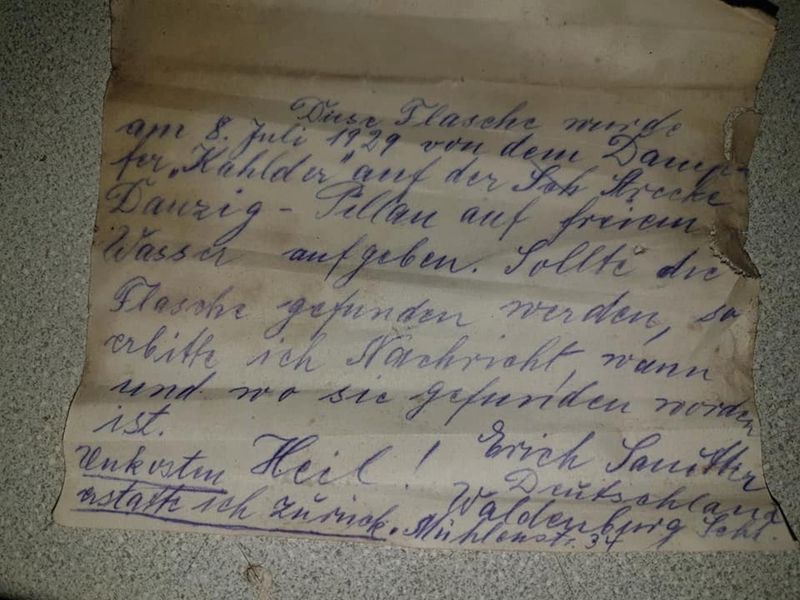 Diese Flasche wurde
am 8. Juli 1929 von dem Damp-
fer „Kahlder" auf der Sch Strecke
Danzig - Pillau auf freiem
Wasser aufgeben. Sollte die
Flasche gefunden werden, so
erbitte ich Nachricht, wann
und wo sie gefunden worden
ist.
Unkosten Heil! Erich
erstatte ich zurück. Deutschland
Waldenburg Schl.
Mühlenstr. 34